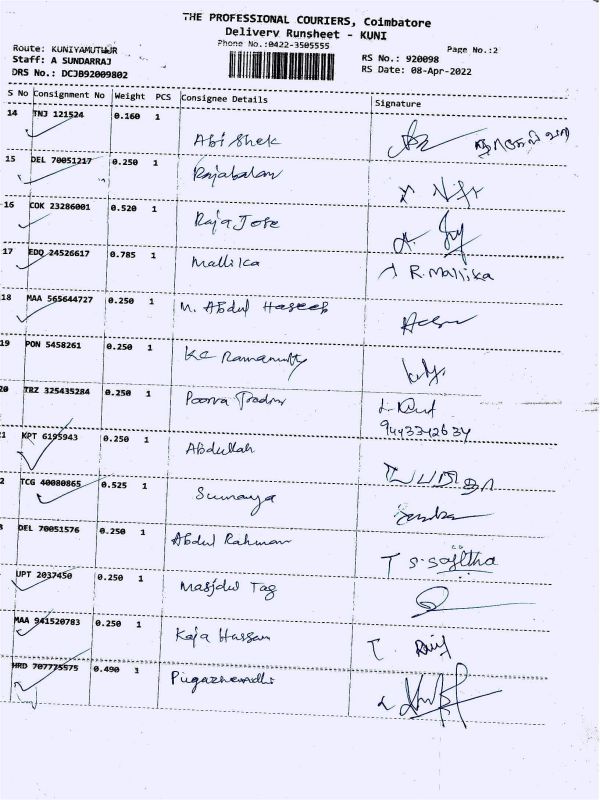 THE PROFESSIONAL COURIERS, Coimbatore
Delivery Runsheet - KUNI
Phone No.:0422-3505555
Page No.:2
Route: KUNIYAMUTHUR
Staff: A SUNDARRAJ
RS No.: 920098
DRS No.: DCJB92009802
RS Date: 08-Apr-2022
S No Consignment No Weight PCS Consignee Details Signature
14 TNJ 121524 0.160 1
Abi Shek
15 DEL 70051217 0.250 1
Rajabalan
16 COK 23286001 0.520 1
Raja Jose
17 EDQ 24526617 0.785 1
Mallika R. Mallika
18 MAA 565644727 0.250 1
M. Abdul Haseeb
19 PON 5458261 0.250 1
KC Ramanutty
20 TRZ 325435284 0.250 1
Poorva Traders
9443342634
21 KPT 6195943 0.250 1
Abdullah
2 TCG 40080865 0.525 1
Sumaya
3 DEL 70051576 0.250 1
Abdul Rahman T S. Sajitha
UPT 2037450 0.250 1
Masjdul Taq
MAA 941520783 0.250 1
Kaja Hassan
HRD 707775575 0.490 1
Pugazhendhi